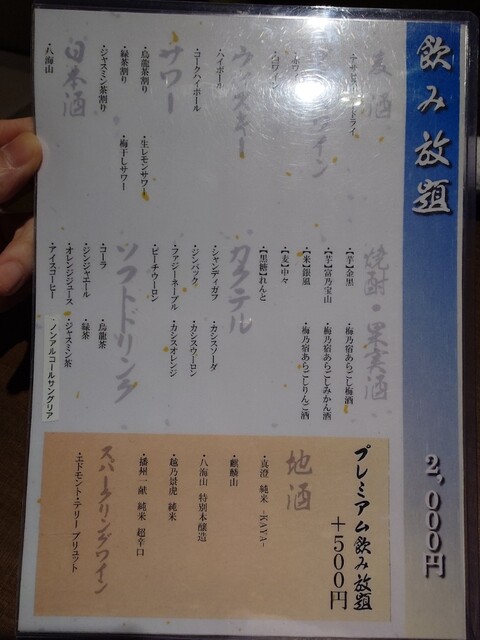 飲み放題
2,000円
麦酒
ワイン
・白ワイン
ウィスキー
・ハイボール
・コークハイボール
サワー
・烏龍茶割り
・緑茶割り
・ジャスミン茶割り
・生レモンサワー
・梅干しサワー
日本酒
・八海山
焼酎・果実酒
・【芋】金黒
・【芋】富乃宝山
・【米】銀風
・【麦】中々
・【黒糖】れんと
・梅乃宿あらごし梅酒
・梅乃宿あらごしみかん酒
・梅乃宿あらごしりんご酒
カクテル
・シャンディガフ
・ジンバック
・ファジーネーブル
・ピーチウーロン
・カシスソーダ
・カシスウーロン
・カシスオレンジ
ソフトドリンク
・コーラ
・ジンジャエール
・オレンジジュース
・アイスコーヒー
・烏龍茶
・緑茶
・ジャスミン茶
・ノンアルコールサングリア
プレミアム飲み放題
+500円
地酒
・真澄 純米 -KAYA-
・麒麟山
・八海山 特別本醸造
・越乃景虎 純米
・播州一献 純米 超辛口
スパークリングワイン
・エドモント・テリー ブリュット